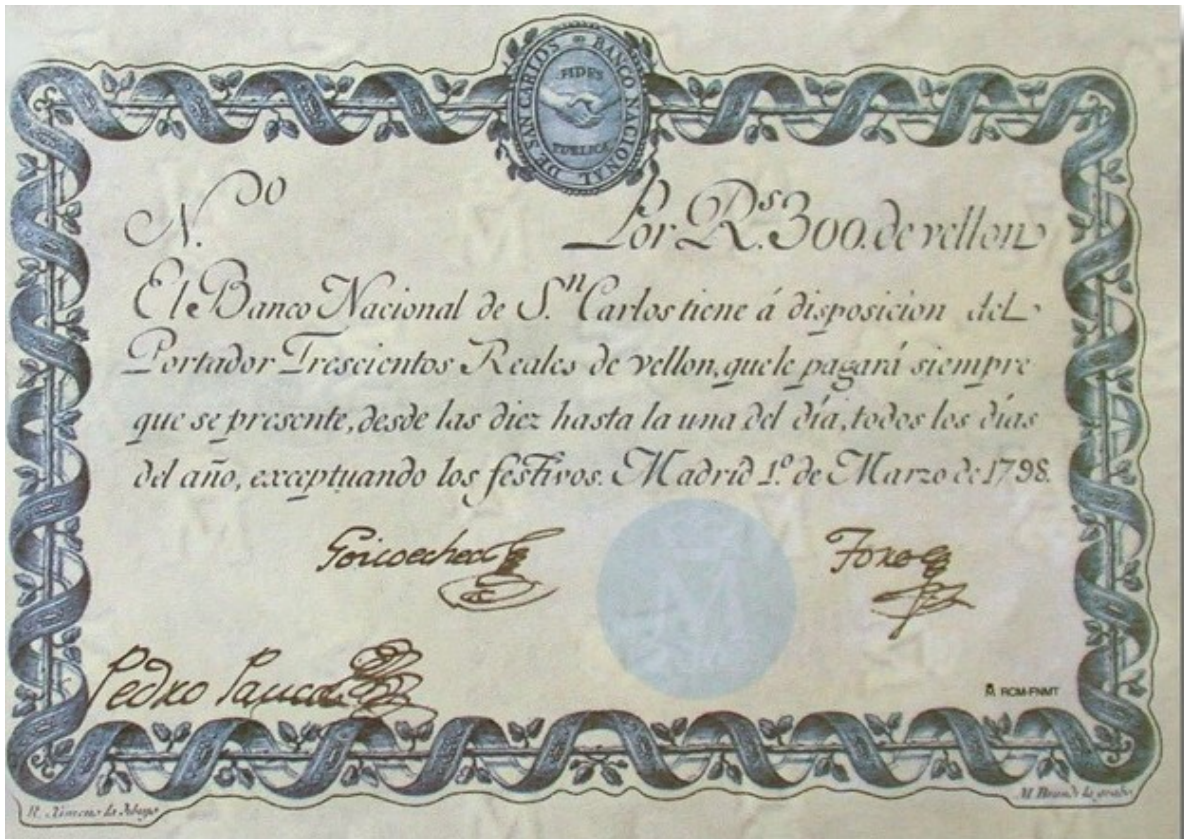 BANCO NACIONAL DE SAN CARLOS
FIDES
PUBLICA
N.
Por R.s 300. de vellon
El Banco Nacional de S.n Carlos tiene á disposicion del
Portador Trescientos Reales de vellon, que le pagará siempre
que se presente, desde las diez hasta la una del día, todos los días
del año, exceptuando los festivos. Madrid 1.º de Marzo de 1798.
Goicoechea
Pedro
RCM-FNMT